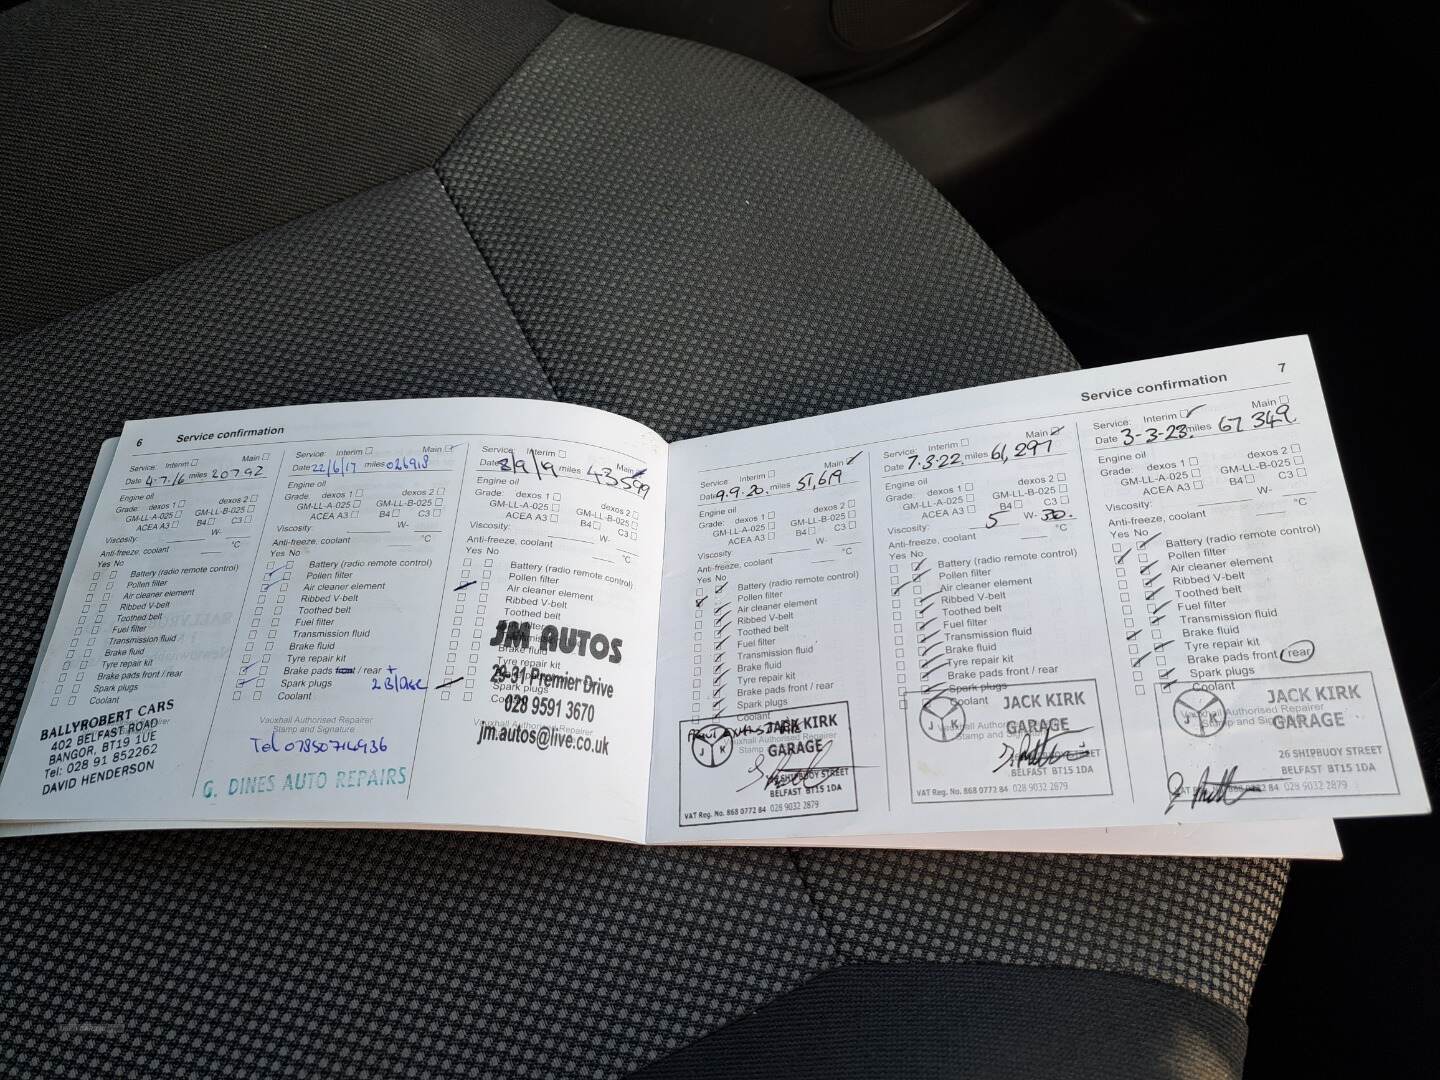 6 Service confirmation
Service: Interim Main
Date 4-7-16 miles 20792
Engine oil
Grade: dexos 1 dexos 2
GM-LL-A-025 GM-LL-B-025
ACEA A3 B4 C3
Viscosity: W-
Anti-freeze, coolant °C
Yes No
Battery (radio remote control)
Pollen filter
Air cleaner element
Ribbed V-belt
Toothed belt
Fuel filter
Transmission fluid
Brake fluid
Tyre repair kit
Brake pads front / rear
Spark plugs
Coolant
BALLYROBERT CARS
402 BELFAST ROAD
BANGOR, BT19 1UE
Tel: 028 91 852262
DAVID HENDERSON
Service: Interim Main
Date 22/6/17 miles 026918
Engine oil
Grade: dexos 1 dexos 2
GM-LL-A-025 GM-LL-B-025
ACEA A3 B4 C3
Viscosity: W-
Anti-freeze, coolant °C
Yes No
Battery (radio remote control)
Pollen filter
Air cleaner element
Ribbed V-belt
Toothed belt
Fuel filter
Transmission fluid
Brake fluid
Tyre repair kit
Brake pads front / rear +
Spark plugs 2 B/Disc
Coolant
Vauxhall Authorised Repairer
Stamp and Signature
Tel 07850714936
G. DINES AUTO REPAIRS
Service: Interim Main
Date 3/9/19 miles 43599
Engine oil
Grade: dexos 1 dexos 2
GM-LL-A-025 GM-LL-B-025
ACEA A3 B4 C3
Viscosity: W-
Anti-freeze, coolant °C
Yes No
Battery (radio remote control)
Pollen filter
Air cleaner element
Ribbed V-belt
Toothed belt
Fuel filter
Brake fluid
Tyre repair kit
Spark plugs
JM AUTOS
29-31 Premier Drive
028 9591 3670
jm.autos@live.co.uk
Service confirmation 7
Service: Interim Main
Date 9.9.20. miles 51,619
Engine oil
Grade: dexos 1 dexos 2
GM-LL-A-025 GM-LL-B-025
ACEA A3 B4 C3
Viscosity: W-
Anti-freeze, coolant °C
Yes No
Battery (radio remote control)
Pollen filter
Air cleaner element
Ribbed V-belt
Toothed belt
Fuel filter
Transmission fluid
Brake fluid
Tyre repair kit
Brake pads front / rear
Spark plugs
Coolant
Vauxhall Authorised Repairer
JACK KIRK
GARAGE
J Y K
26 SHIPBUOY STREET
BELFAST BT15 1DA
VAT Reg. No. 868 0772 84 028 9032 2879
Service: Interim Main
Date 7.3.22. miles 61,297
Engine oil
Grade: dexos 1 dexos 2
GM-LL-A-025 GM-LL-B-025
ACEA A3 B4 C3
Viscosity: 5 W- 30.
Anti-freeze, coolant °C
Yes No
Battery (radio remote control)
Pollen filter
Air cleaner element
Ribbed V-belt
Toothed belt
Fuel filter
Transmission fluid
Brake fluid
Tyre repair kit
Brake pads front / rear
Spark plugs
Coolant
Vauxhall Authorised Repairer
Stamp and Signature
JACK KIRK
GARAGE
J Y K
BELFAST BT15 1DA
VAT Reg. No. 868 0772 84 028 9032 2879
Service: Interim Main
Date 3-3-23. miles 67 349.
Engine oil
Grade: dexos 1 dexos 2
GM-LL-A-025 GM-LL-B-025
ACEA A3 B4 C3
Viscosity: W-
Anti-freeze, coolant °C
Yes No
Battery (radio remote control)
Pollen filter
Air cleaner element
Ribbed V-belt
Toothed belt
Fuel filter
Transmission fluid
Brake fluid
Tyre repair kit
Brake pads front / rear
Spark plugs
Coolant
Vauxhall Authorised Repairer
Stamp and Signature
JACK KIRK
GARAGE
J Y K
26 SHIPBUOY STREET
BELFAST BT15 1DA
028 9032 2879